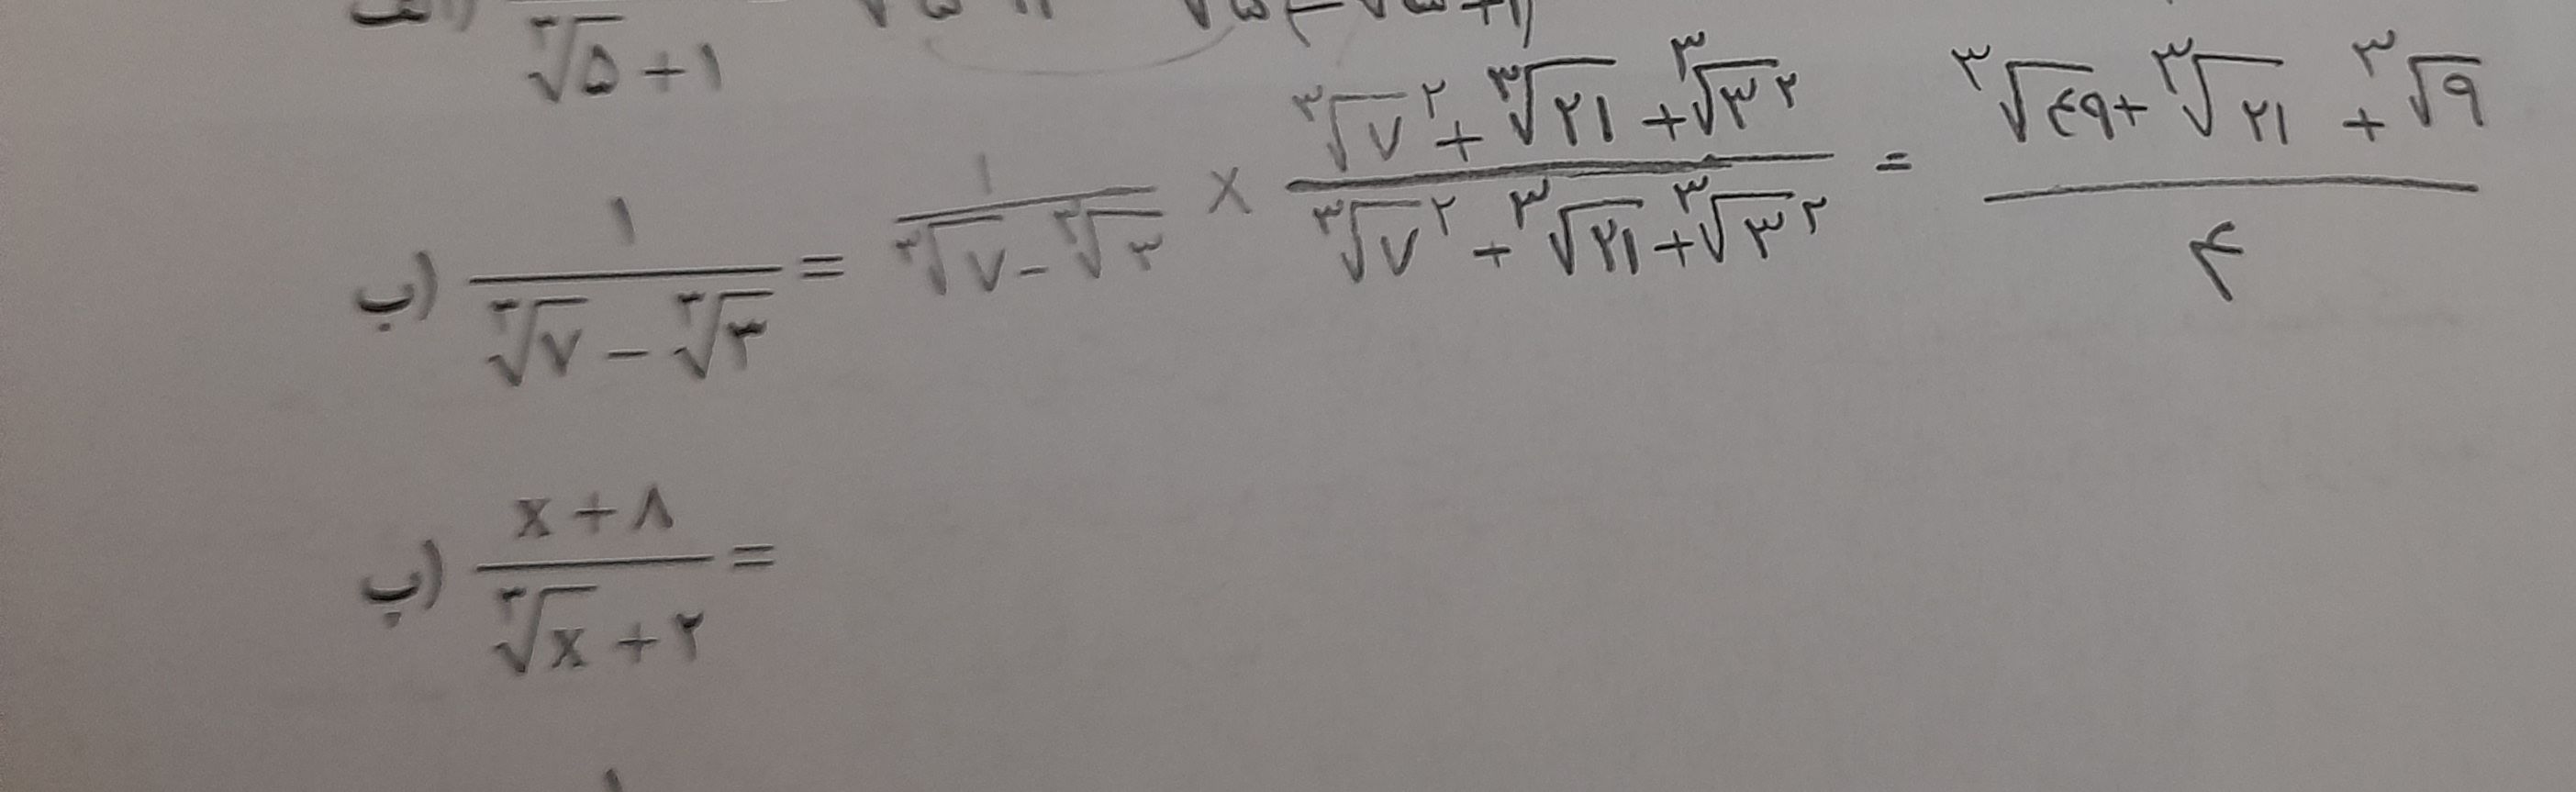 ۳√۵ + ۱
ب) ۱ / (۳√۷ − ۳√۳) = ۱ / (۳√۷ − ۳√۳) × (۳√۷۲ + ۳√۲۱ + ۳√۳۲) / (۳√۷۲ + ۳√۲۱ + ۳√۳۲) = (۳√۴۹ + ۳√۲۱ + ۳√۹) / ۴
پ) (x + ۸) / (۳√x + ۲) =